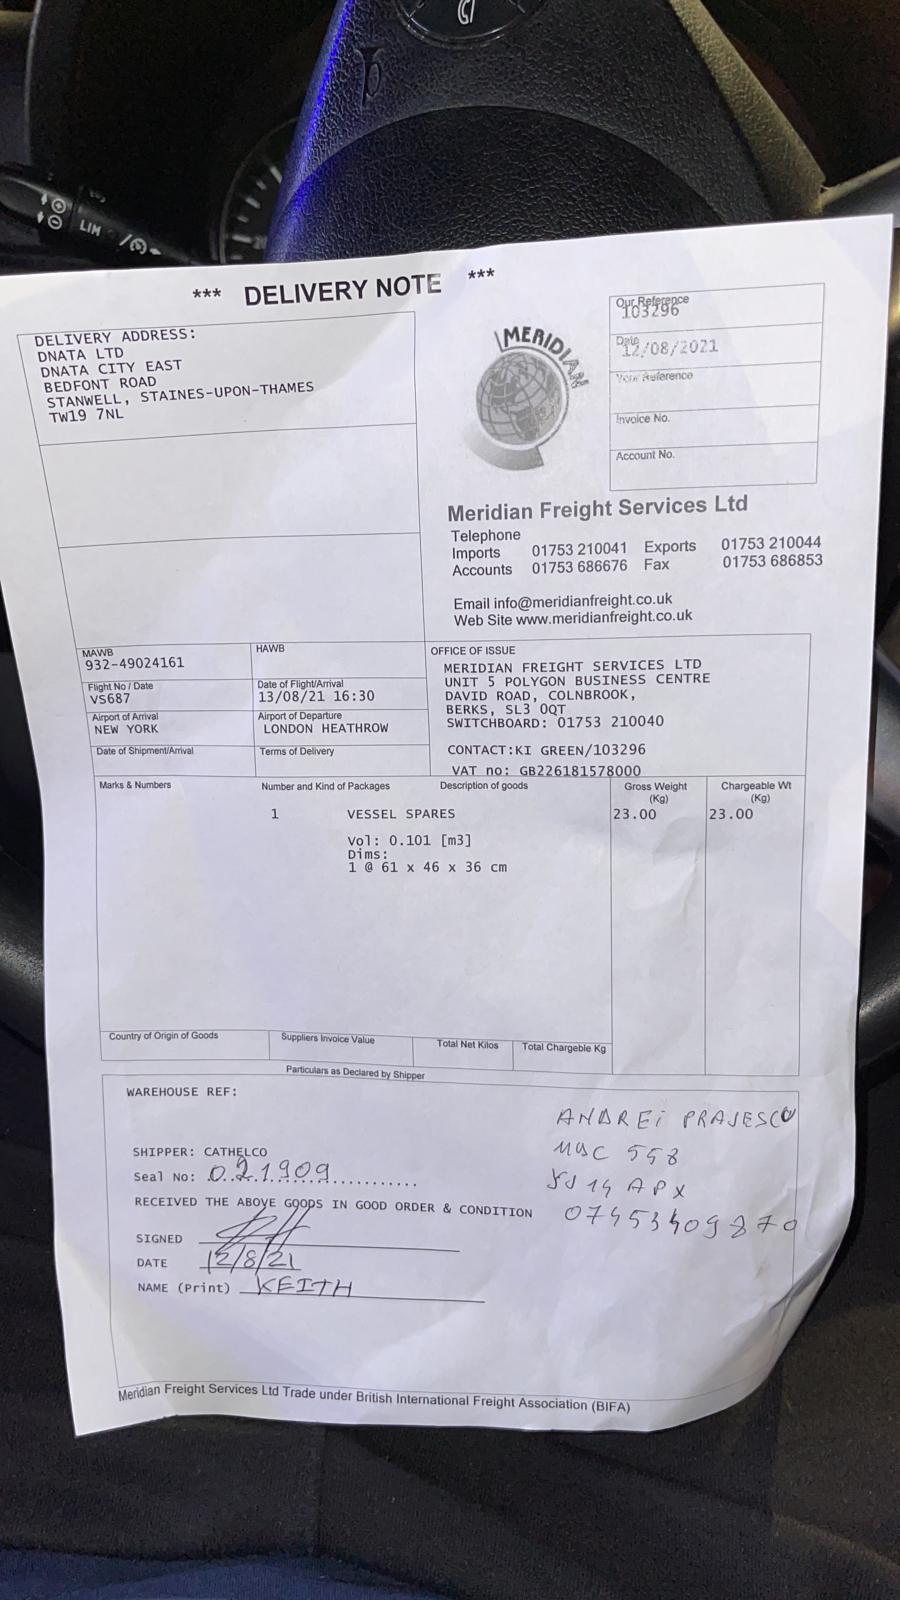 LIM
*** DELIVERY NOTE ***
DELIVERY ADDRESS:
DNATA LTD
DNATA CITY EAST
BEDFONT ROAD
STANWELL, STAINES-UPON-THAMES
TW19 7NL
MERIDIAN
Our Reference
103296
Date
12/08/2021
Your Reference
Invoice No.
Account No.
Meridian Freight Services Ltd
Telephone
Imports 01753 210041 Exports 01753 210044
Accounts 01753 686676 Fax 01753 686853
Email info@meridianfreight.co.uk
Web Site www.meridianfreight.co.uk
MAWB
932-49024161
HAWB
Flight No / Date
VS687
Date of Flight/Arrival
13/08/21 16:30
Airport of Arrival
NEW YORK
Airport of Departure
LONDON HEATHROW
Date of Shipment/Arrival
Terms of Delivery
OFFICE OF ISSUE
MERIDIAN FREIGHT SERVICES LTD
UNIT 5 POLYGON BUSINESS CENTRE
DAVID ROAD, COLNBROOK,
BERKS, SL3 0QT
SWITCHBOARD: 01753 210040
CONTACT:KI GREEN/103296
VAT no: GB226181578000
Marks & Numbers Number and Kind of Packages Description of goods Gross Weight (Kg) Chargeable Wt (Kg)
1 VESSEL SPARES 23.00 23.00
Vol: 0.101 [m3]
Dims:
1 @ 61 x 46 x 36 cm
Country of Origin of Goods Suppliers Invoice Value Total Net Kilos Total Chargeble Kg
Particulars as Declared by Shipper
WAREHOUSE REF:
SHIPPER: CATHELCO
Seal No: 021909
RECEIVED THE ABOVE GOODS IN GOOD ORDER & CONDITION
SIGNED
DATE 12/8/21
NAME (Print) KEITH
ANDREI PRAJESCU
558
14 APX
07453409870
Meridian Freight Services Ltd Trade under British International Freight Association (BIFA)